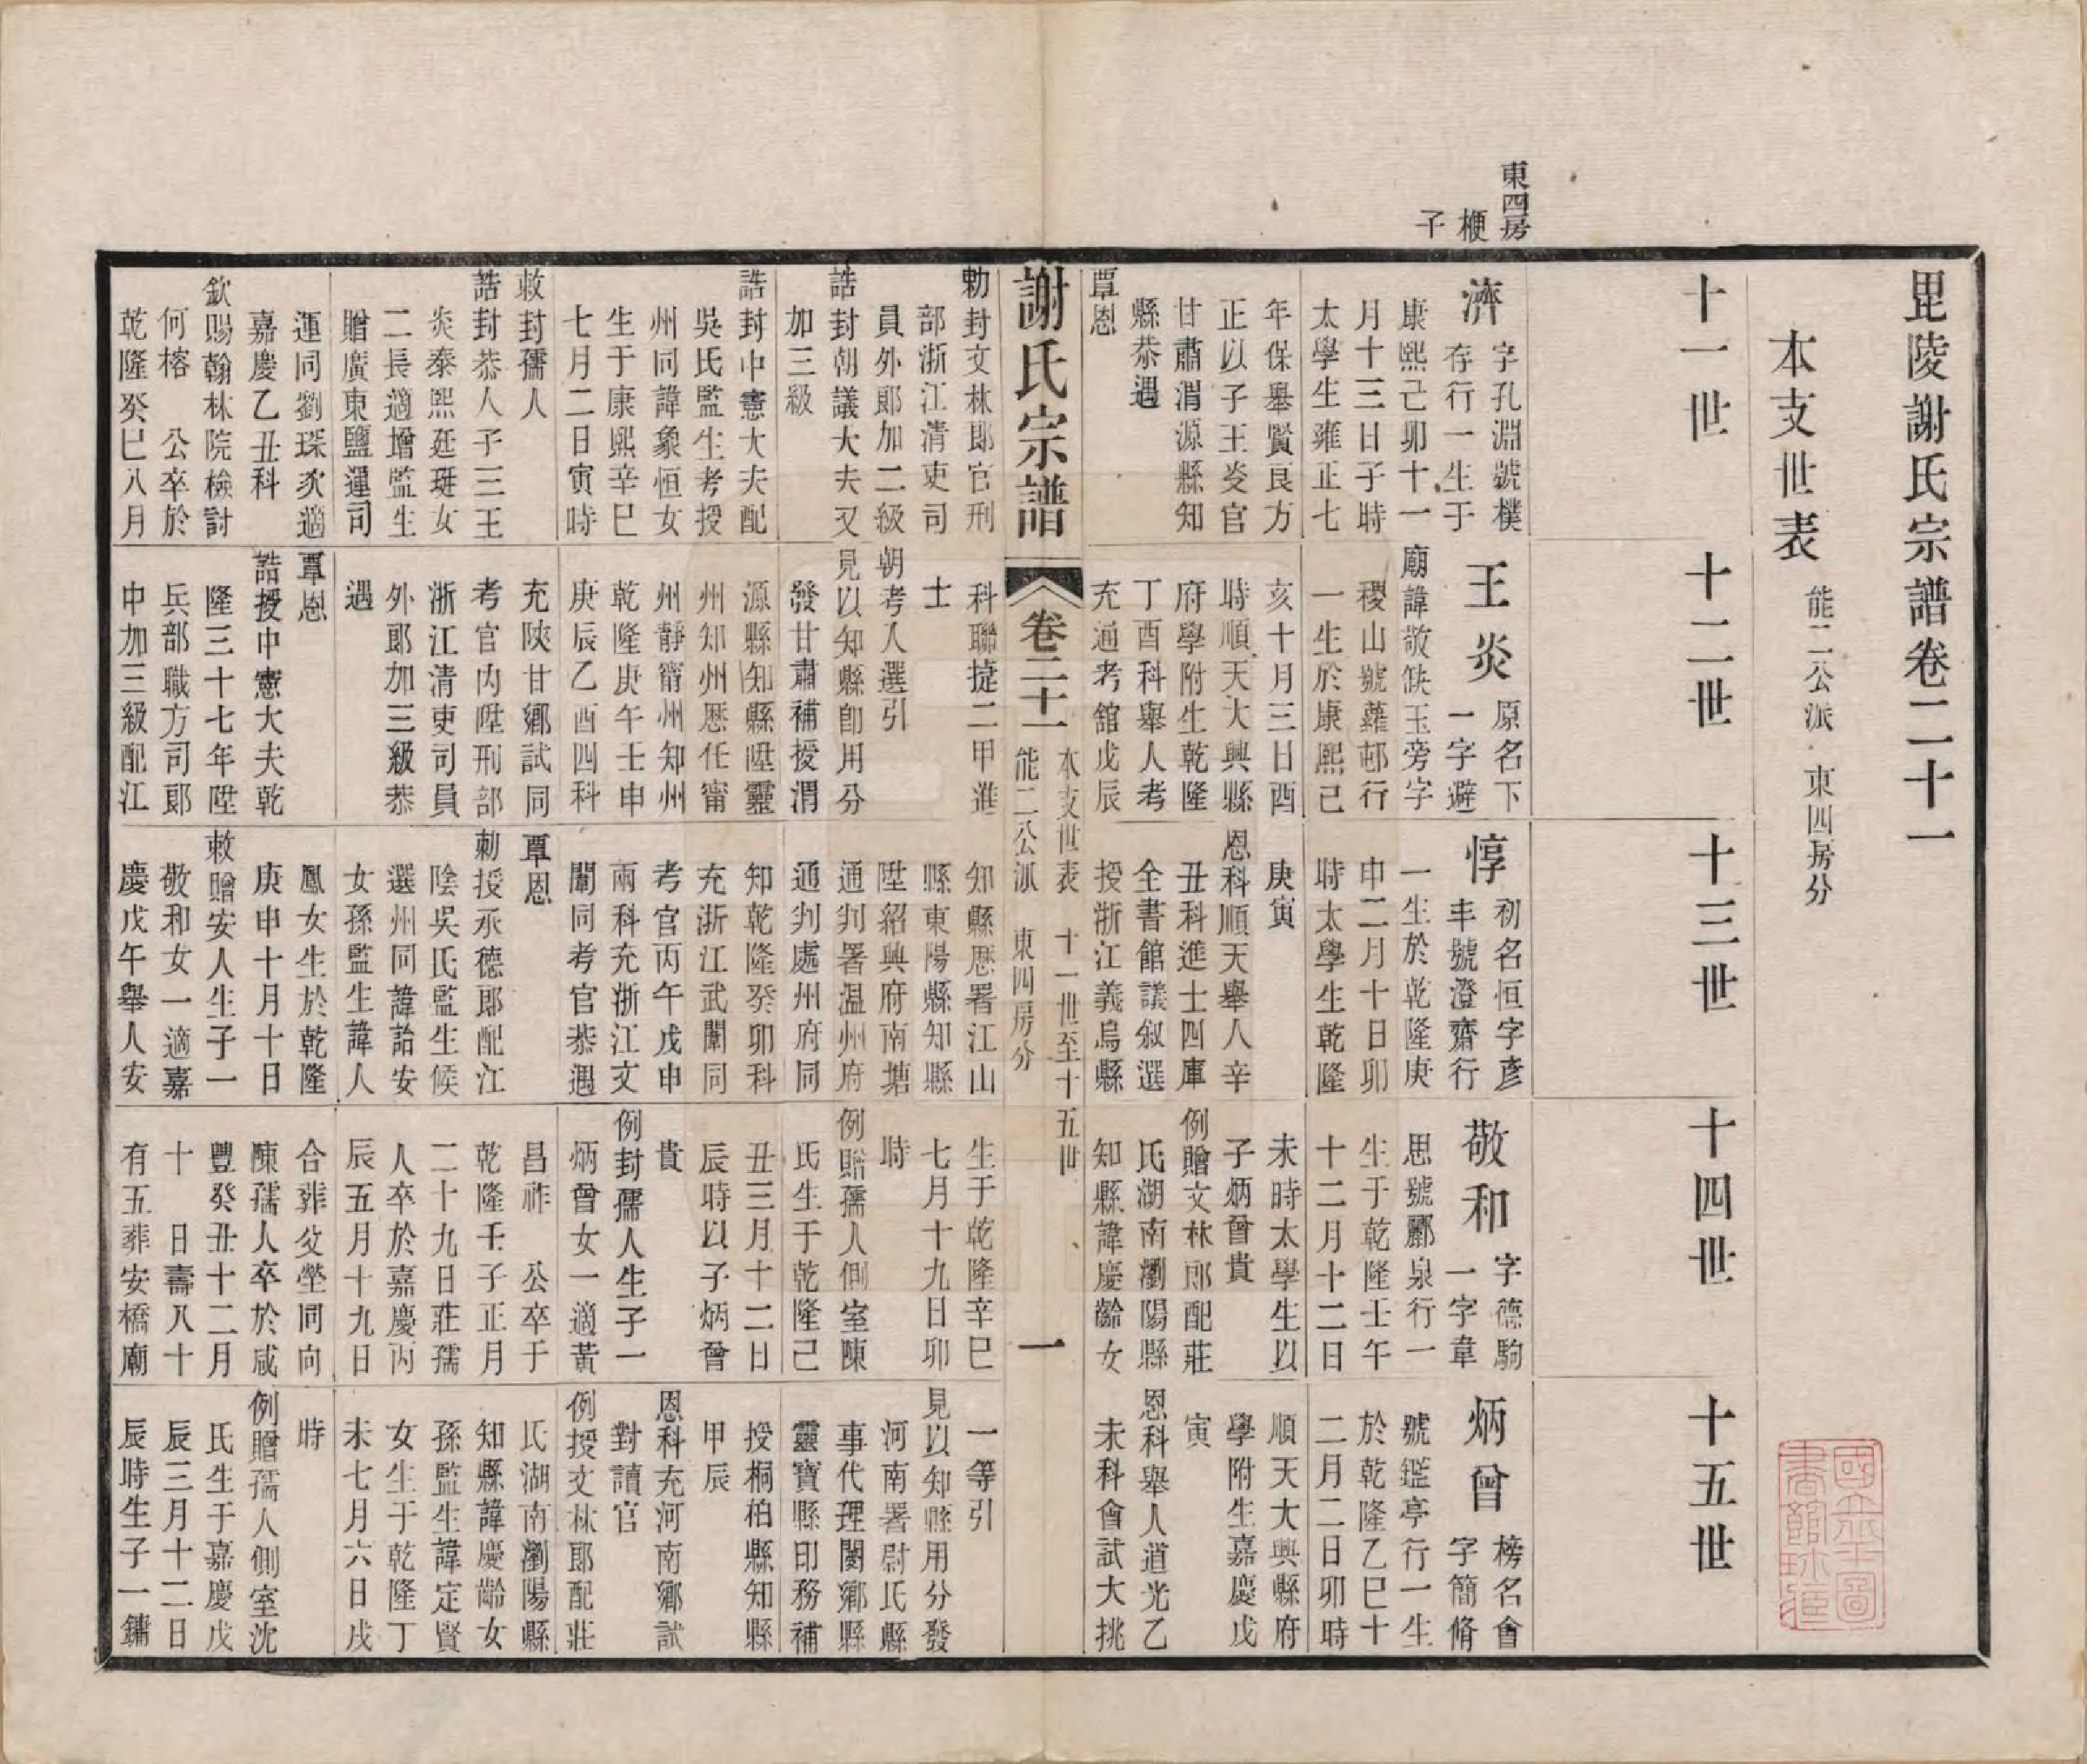 毘陵謝氏宗譜卷二十一
本支世表 能二公派 東四房分
十一世
十二世
十三世
十四世
十五世
東四房
梗
子
濟 字孔淵號樸
存行一生于
康熙己卯十一
月十三日子時
太學生雍正七
年保舉賢良方
正以子王炎官
甘肅渭源縣知
縣恭遇
覃恩
勅封文林郎官刑
部浙江清吏司
員外郎加二級
誥封朝議大夫又
加三級
誥封中憲大夫配
吳氏監生考授
州同諱象恒女
生于康熙辛巳
七月二日寅時
敕封孺人
誥封恭人子三王
炎泰熙廷珽女
二長適增監生
贈廣東鹽運司
運同劉琛次適
嘉慶乙丑科
欽賜翰林院檢討
何榕 公卒於
乾隆癸巳八月
王炎 原名下
一字避
廟諱敬缺玉旁字
稷山號蘿邨行
一生於康熙己
亥十月三日酉
時順天大興縣
府學附生乾隆
丁酉科舉人考
充通考館戊辰
科聯捷二甲進
士
朝考入選引
見以知縣卽用分
發甘肅補授渭
源縣知縣陞靈
州知州歷任甯
州靜甯州知州
乾隆庚午壬申
庚辰乙酉四科
充陝甘鄉試同
考官內陞刑部
浙江清吏司員
外郎加三級恭
遇
覃恩
誥授中憲大夫乾
隆三十七年陞
兵部職方司郎
中加三級配江
惇 初名恒字彥
丰號澄齋行
一生於乾隆庚
申二月十日卯
時太學生乾隆
庚寅
恩科順天舉人辛
丑科進士四庫
全書館議叙選
授浙江義烏縣
知縣歷署江山
縣東陽縣知縣
陞紹興府南塘
通判署温州府
通判處州府同
知乾隆癸卯科
充浙江武闈同
考官丙午戊申
兩科充浙江文
闈同考官恭遇
覃恩
勅授承德郎配江
陰吳氏監生候
選州同諱詒安
女孫監生諱人
鳳女生於乾隆
庚申十月十日
敕贈安人生子一
敬和女一適嘉
慶戊午舉人安
敬和 字德駒
一字韋
思號酈泉行一
生于乾隆壬午
十二月十二日
未時太學生以
子炳曾貴
例贈文林郎配莊
氏湖南瀏陽縣
知縣諱慶齡女
生于乾隆辛巳
七月十九日卯
時
例贈孺人側室陳
氏生于乾隆己
丑三月十二日
辰時以子炳曾
貴
例封孺人生子一
炳曾女一適黃
昌祚 公卒于
乾隆壬子正月
二十九日莊孺
人卒於嘉慶丙
辰五月十九日
合葬父塋同向
陳孺人卒於咸
豐癸丑十二月
十 日壽八十
有五葬安橋廟
炳曾 榜名會
字簡脩
號鑑亭行一生
於乾隆乙巳十
二月二日卯時
順天大興縣府
學附生嘉慶戊
寅
恩科舉人道光乙
未科會試大挑
一等引
見以知縣用分發
河南署尉氏縣
事代理閿鄉縣
靈寶縣印務補
授桐柏縣知縣
甲辰
恩科充河南鄉試
對讀官
例授文林郎配莊
氏湖南瀏陽縣
知縣諱慶齡女
孫監生諱定賢
女生于乾隆丁
未七月六日戌
時
例贈孺人側室沈
氏生于嘉慶戊
辰三月十二日
辰時生子一鏞
謝氏宗譜 卷二十一 本支世表 十一世至十五世
能二公派 東四房分
一
國立北平圖
書館珍藏